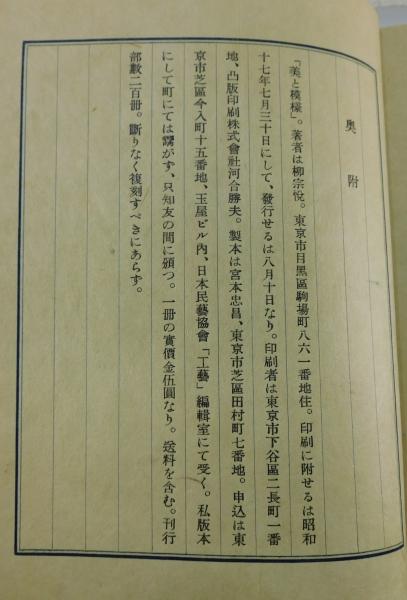 奥附
「美と模樣」。著者は柳宗悅。東京市目黑區駒場町八六一番地住。印刷に附せるは昭和
十七年七月三十日にして、發行せるは八月十日なり。印刷者は東京市下谷區二長町一番
地、凸版印刷株式會社河合勝夫。製本は宮本忠昌、東京市芝區田村町七番地。申込は東
京市芝區今入町十五番地、玉屋ビル內、日本民藝協會「工藝」編輯室にて受く。私版本
にして町にては鬻がず、只知友の間に頒つ。一冊の實價金伍圓なり。送料を含む。刊行
部數二百冊。斷りなく復刻すべきにあらず。